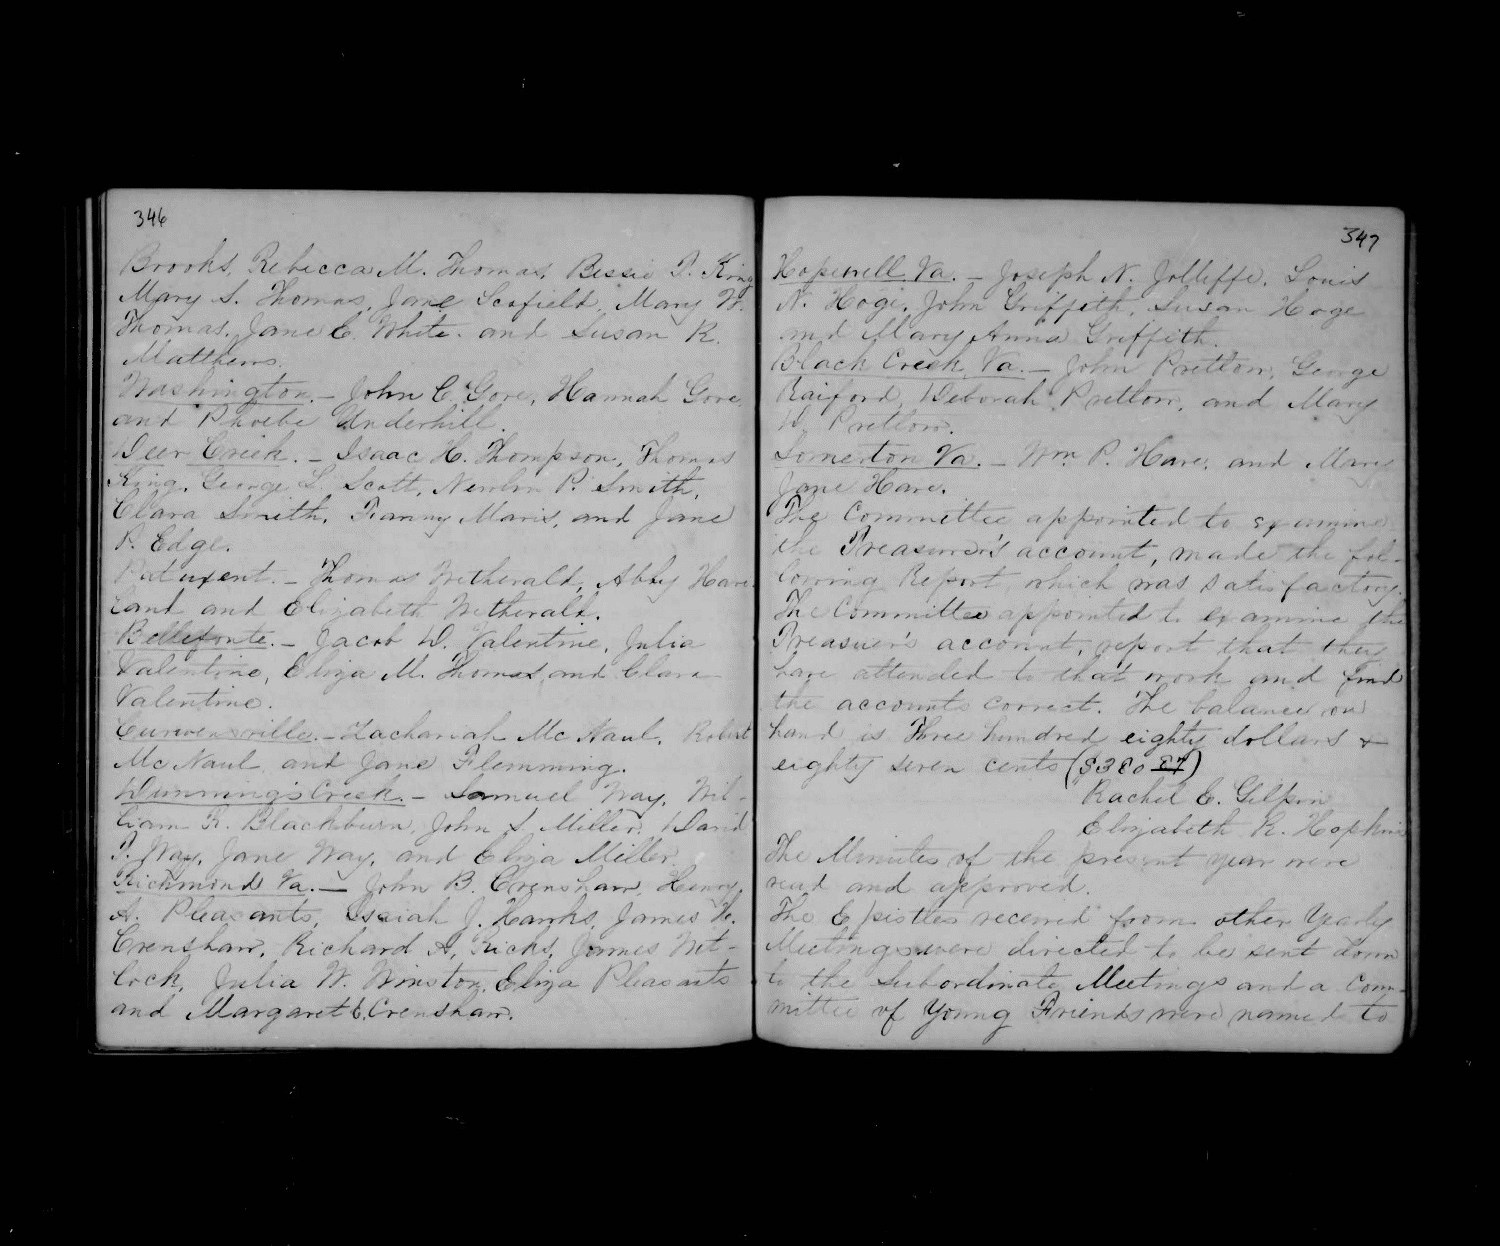 346
Brooks, Rebecca M. Thomas, Bessie P. King
Mary S. Thomas, Jane Scofield, Mary W.
Thomas, Jane C. White and Susan R.
Matthews.
Washington. - John C. Gore, Hannah Gore
and Phoebe Underhill.
Deer Creek. - Isaac H. Thompson, Thomas
King, George L. Scott, Newlin P. Smith,
Clara Smith, Fanny Maris, and Jane
P. Edge.
Patuxent. - Thomas Witherald, Abby Havi
land and Elizabeth Witherald.
Bellefonte. - Jacob D. Valentine, Julia
Valentine, Eliza M. Thomas and Clara
Valentine.
Curwensville. - Zachariah Mc Naul, Robert
Mc Naul and Jane Flemming.
Dunnings Creek. - Samuel Way, Wil-
liam R. Blackburn, John S. Miller, David
P. Way, Jane Way, and Eliza Miller.
Richmond Va. - John B. Crenshaw, Henry
A. Pleasants, Isaiah J. Hanks, James H.
Crenshaw, Richard A. Ricks, James Wit-
lock, Julia W. Winston, Eliza Pleasants
and Margaret E. Crenshaw.
347
Hopewell Va. - Joseph N. Jolleffe, Louis
N. Hoge, John Griffith, Susan Hoge
and Mary Anna Griffith.
Black Creek Va. - John Pretlow, George
Raiford, Deborah Pretlow, and Mary
D. Pretlow.
Somerton Va. - Wm. P. Hare, and Mary
Jane Hare.
The Committee appointed to examine
the Treasurer's account, made the fol-
lowing Report, which was satisfactory.
The Committee appointed to examine the
Treasuer's account, report that they
have attended to that work and find
the accounts correct. The balance on
hand is Three hundred eighty dollars &
eighty seven cents ($380 87)
Rachel E. Gilpin
Elizabeth R. Hopkins
The Minutes of the present year were
read and approved.
The Epistles received from other Yearly
Meetings were directed to be sent down
to the Subordinate Meetings and a Com-
mittee of Young Friends were named to